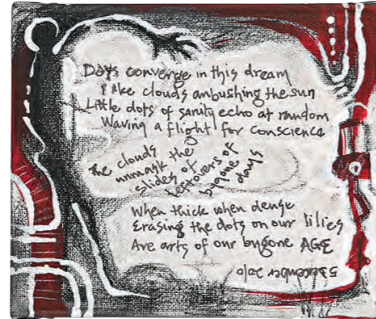 Days converge in this dream
Like clouds ambushing the sun
Little dots of sanity echo at random
Waving a flight for conscience
The clouds
unmask the
slides of
leftovers of
bygone days
When thick when dense
Erasing the dots on our lilies
Are arts of our bygone AGE
5 December 2010